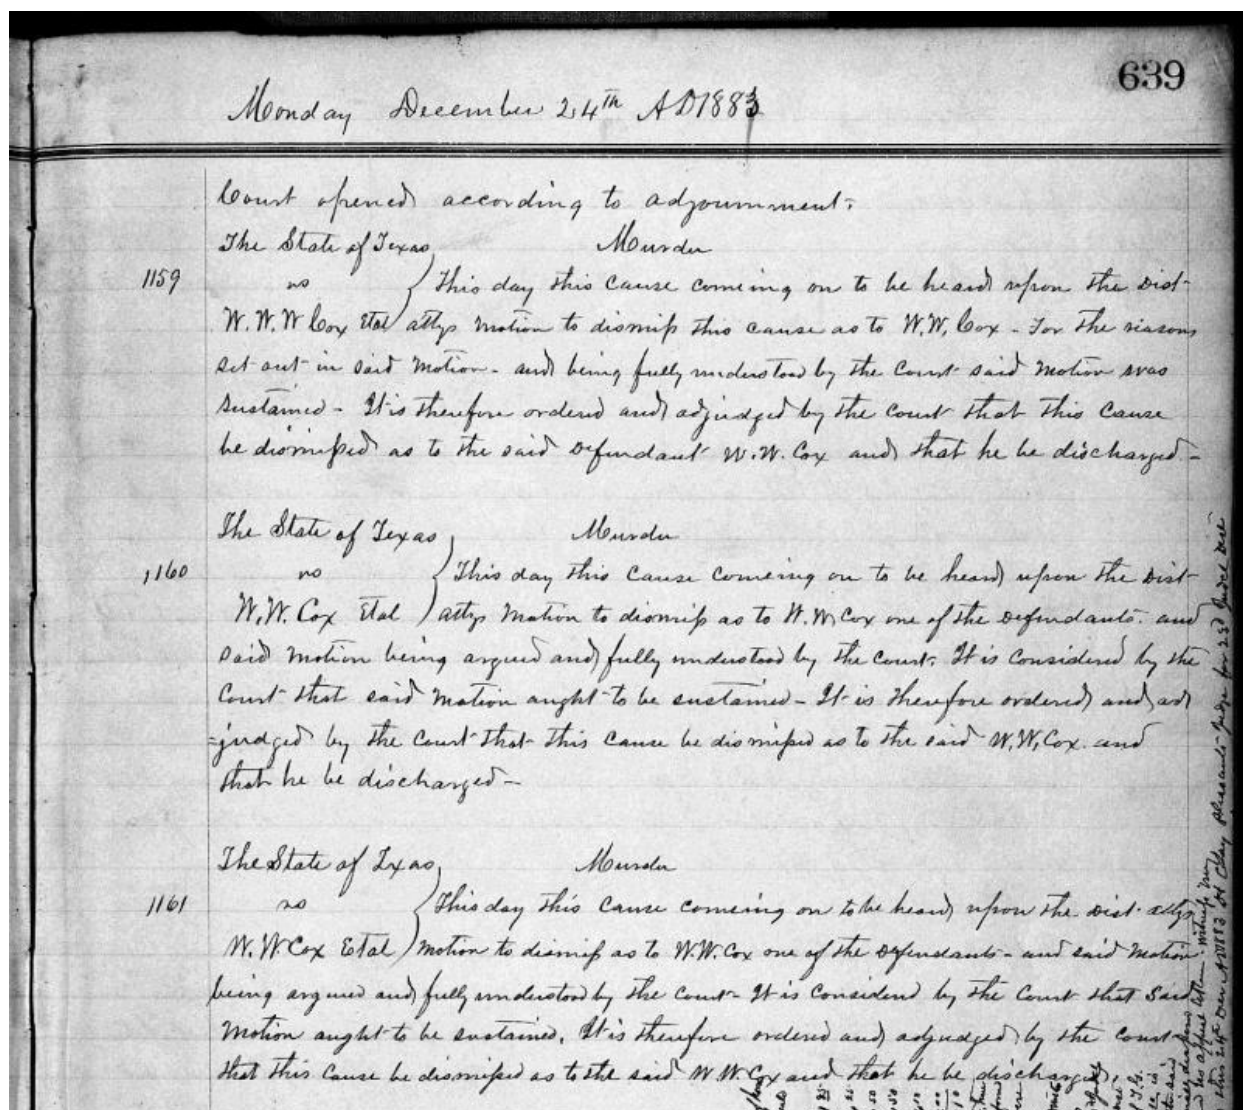 639
Monday December 24th AD 1883
Court opened according to adjournment.
The State of Texas Murder
1159 vs This day this cause comeing on to be heard upon the Dist-
W. W. W Cox Etal attys Motion to dismiss this cause as to W. W. Cox - For the reasons
set out in said Motion - and being fully understood by the Court said Motion was
sustained - It is therefore ordered and adjudged by the Court that this Cause
be dismissed as to the said Defendant W. W. Cox and that he be discharged -
The State of Texas Murder
1160 vs This day this Cause comeing on to be heard upon the Dist-
W. W. Cox Etal attys Motion to dismiss as to W. W. Cox one of the Defendants. and
said Motion being argued and fully understood by the Court. It is Considered by the
Court that said Motion aught to be sustained - It is therefore ordered and ad
=judged by the Court that this Cause be dismissed as to the said W. W. Cox. and
that he be discharged -
The State of Texas Murder
1161 vs This day this Cause comeing on to be heard upon the Dist- attys
W. W Cox Etal Motion to dismiss as to W. W. Cox one of the Defendants - and said Motion
being argued and fully understood by the Court - It is Considerd by the Court that Said
Motion aught to be sustained. It is therefore ordered and adjudged by the Court -
that this Cause be dismissed as to the said W. W. Cox and that he be discharged.
this 24th AD 1883 Judge for 23d